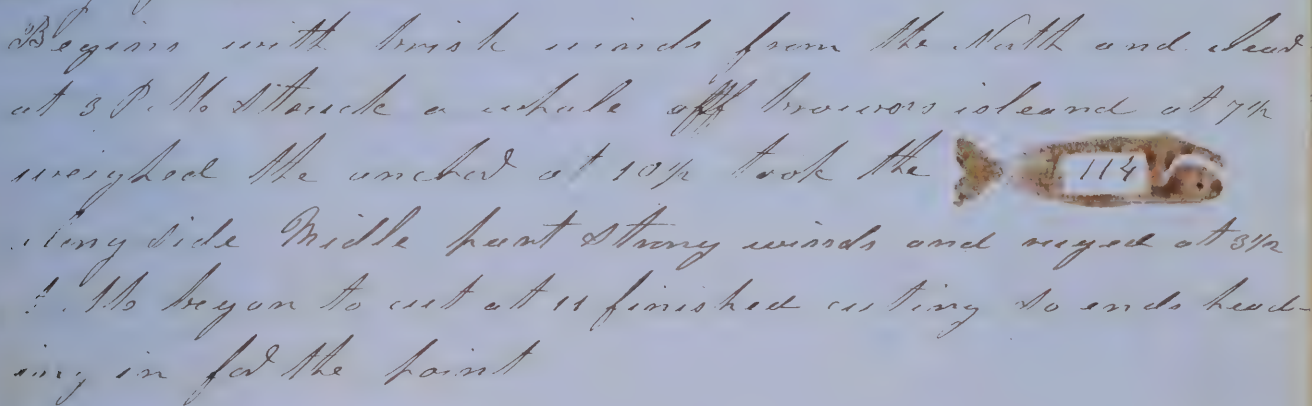 Begins with brisk winds from the North and clear
at 3 P. M. Struck a whale off browers isleand at 7½
weighed the anchor at 10½ took the 114
along side Midle part Strong winds and ruged at 3½
P. M. began to cut at 11 finished cuting So ends head-
ing in for the point